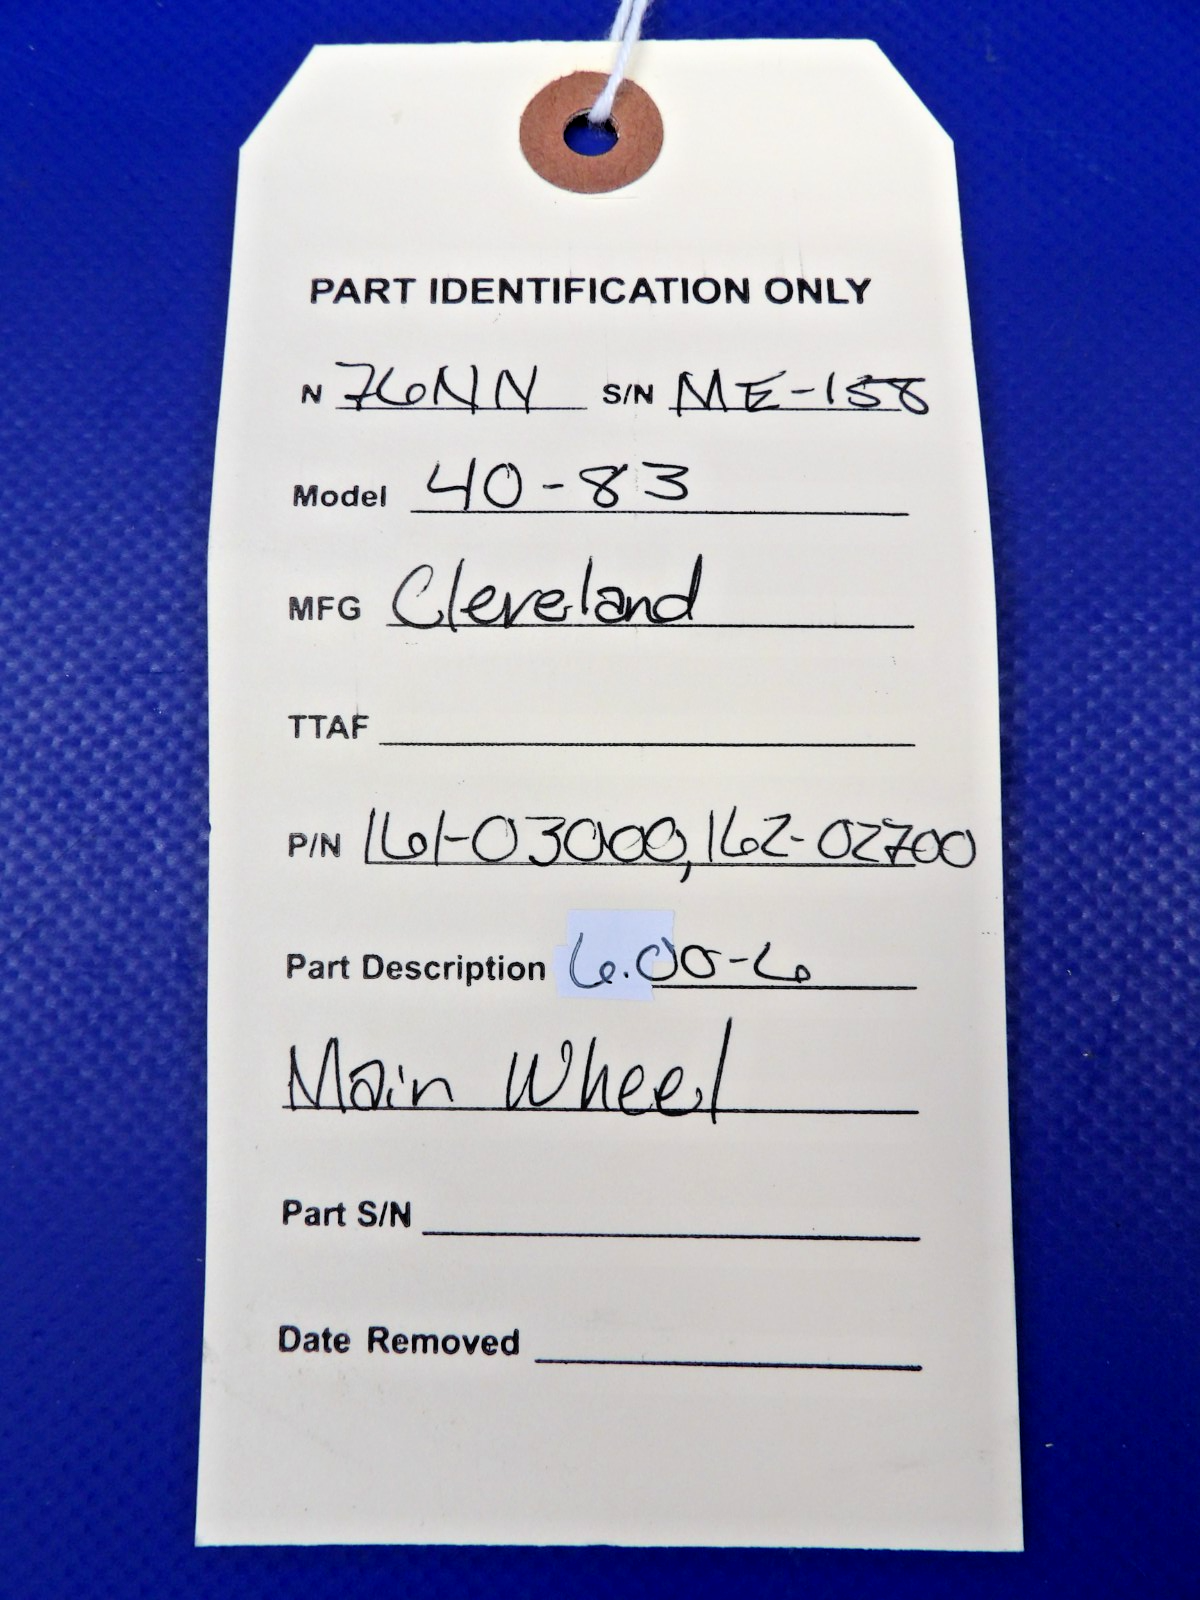 PART IDENTIFICATION ONLY
N 76NN S/N ME-158
Model 40-83
MFG Cleveland
TTAF
P/N 161-03000, 162-02700
Part Description 6.00-6
Main Wheel
Part S/N
Date Removed